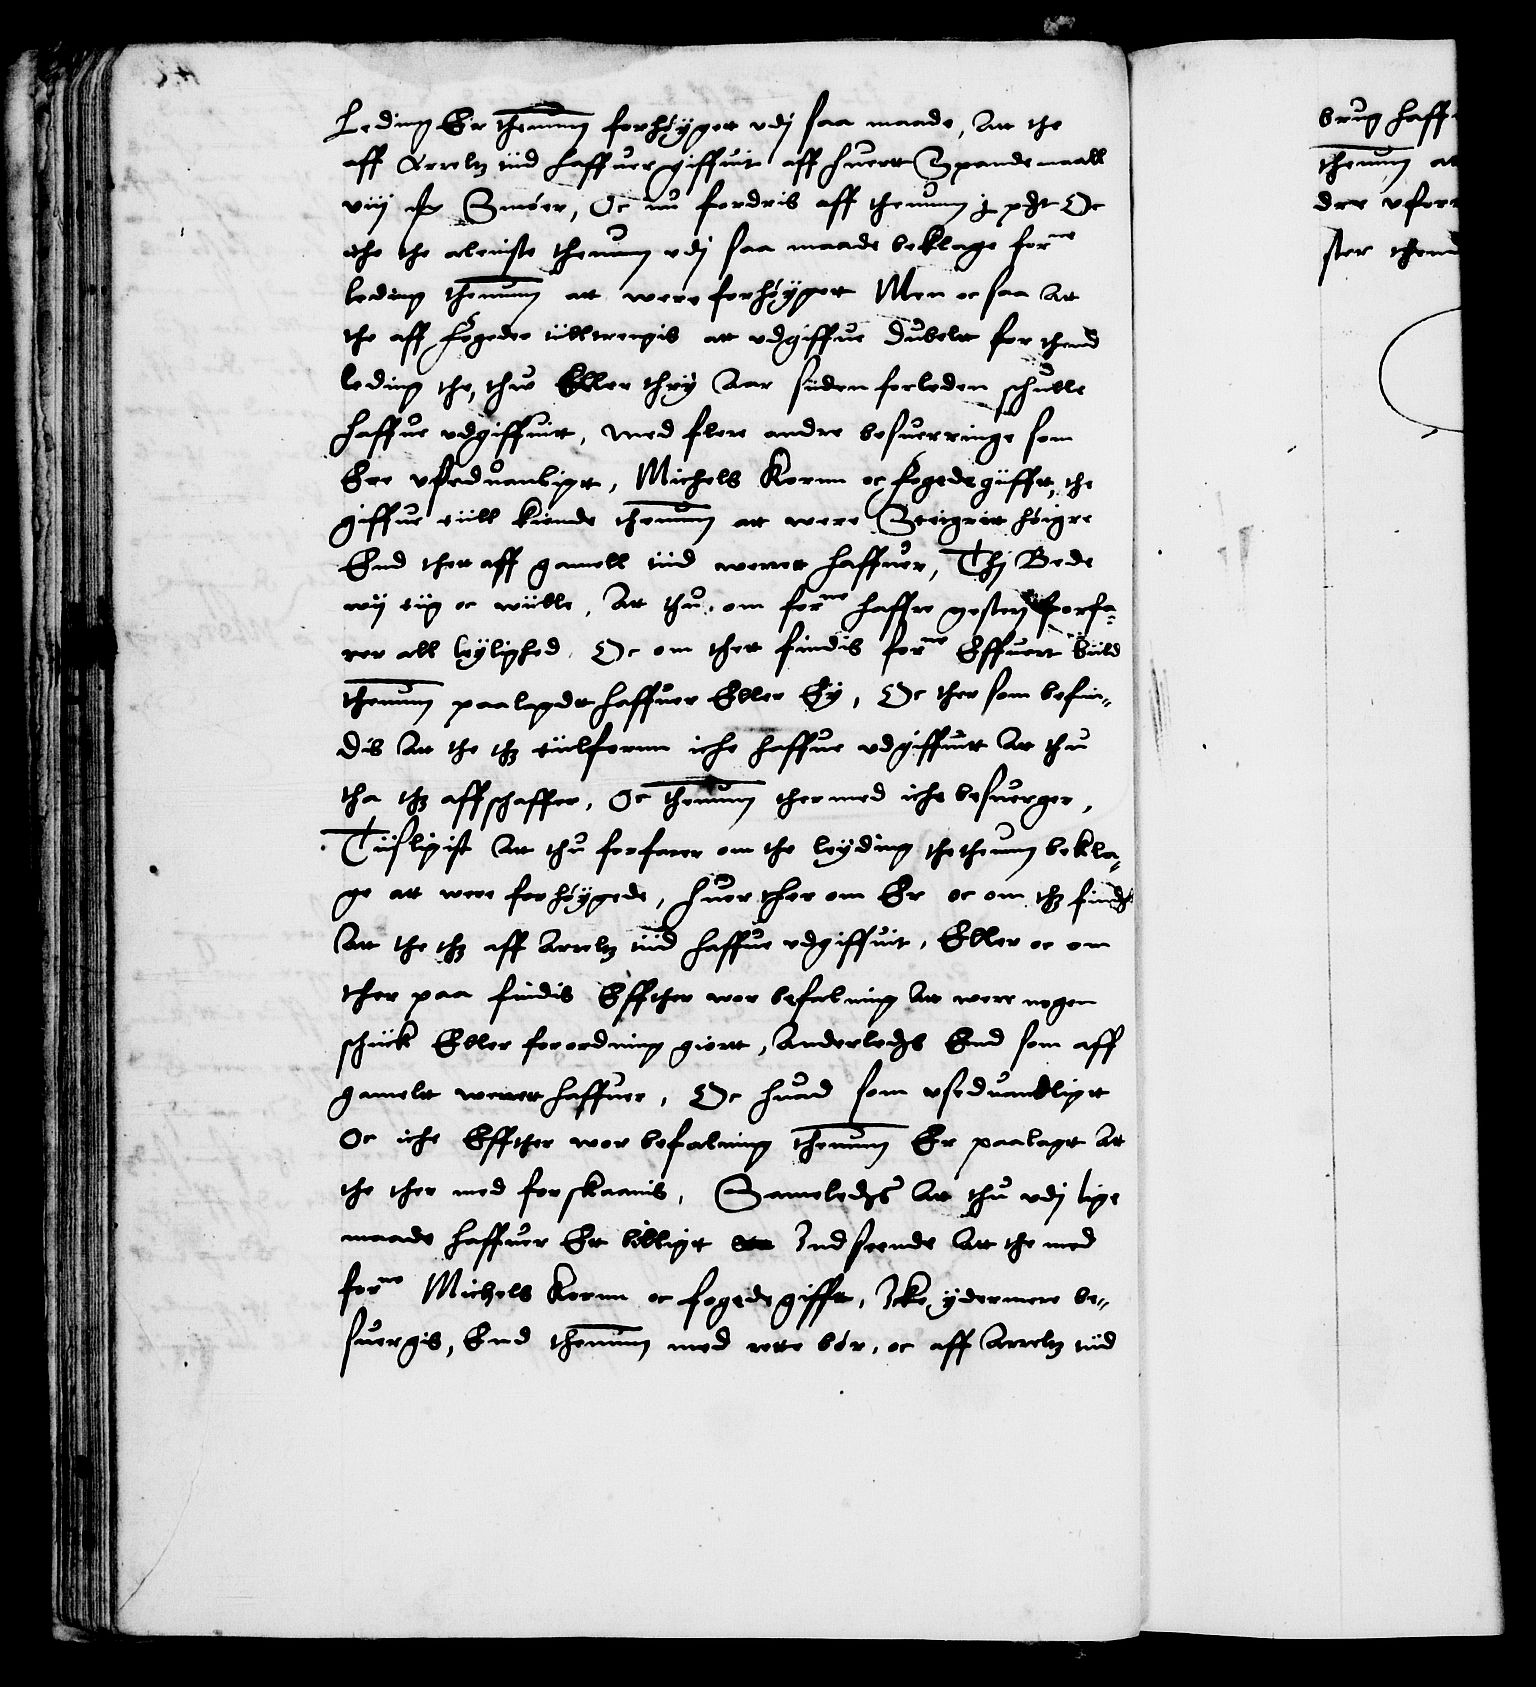 Leding Er thennum forhøyget vdj saa maade, Att the
aff Arreltz tiid haffuer giffuit aff huertt Spandemaall
viij Smöer, Oc nu fordris aff thennum j pdt Oc
iche the aleniste thennum vdj saa maade beklage forne
leding thennum att were forhöygett Men oc saa Att
the aff fogeder tiilltrengis att vdgiffue dubelt for thend
leding the, thw Eller thry Aar siiden forleden schulle
haffue vdgiffuitt, med flere andre besuerringe som
Ere vseduanligtt, Michels Kornn oc fogedegiifft, the
giffue tiill kiende thennum att were Steigritt höigre
End thet aff gamell tiid werret haffuer, Thj Bede
wij tiig oc wiille, Att thu om forne haffre gesterj forfa-
rer all leylighed Oc om thet findis forne Effuert biild
thennum paalagdt haffuer Eller Ey, Oc ther som befin-
dis Att the thz tiilfornn iche haffue vdgiffuitt Att thu
tha thz affschaffer, Oc thennum thermed iche besuerger,
Tiisligist Att thu forfarer om the leyding the thennum bekla-
ge att were forhöygede, huer ther om Er oc om thz finds
Att the thz aff Arreltz tiid haffue vdgiffuit, Eller oc om
ther paa findis Effther wor befalning Att were nogen
schick Eller forordning giortt, Anderledis End som aff
gamelt werret haffuer, Oc huad som vseduandligtt
Oc iche Effther wor befalning thennum Er paalagt Att
the ther med forskaanis, Sameledis Att thu vdj lige
maade haffuer Et billigt Indseende Att the med
forne Michels Kornn oc fogedegifft, Icke ydermere be-
suergis, End thennum med rette bör, oc aff Arreltz tiid
brug haff
thennum at
dre vfor
ster thend